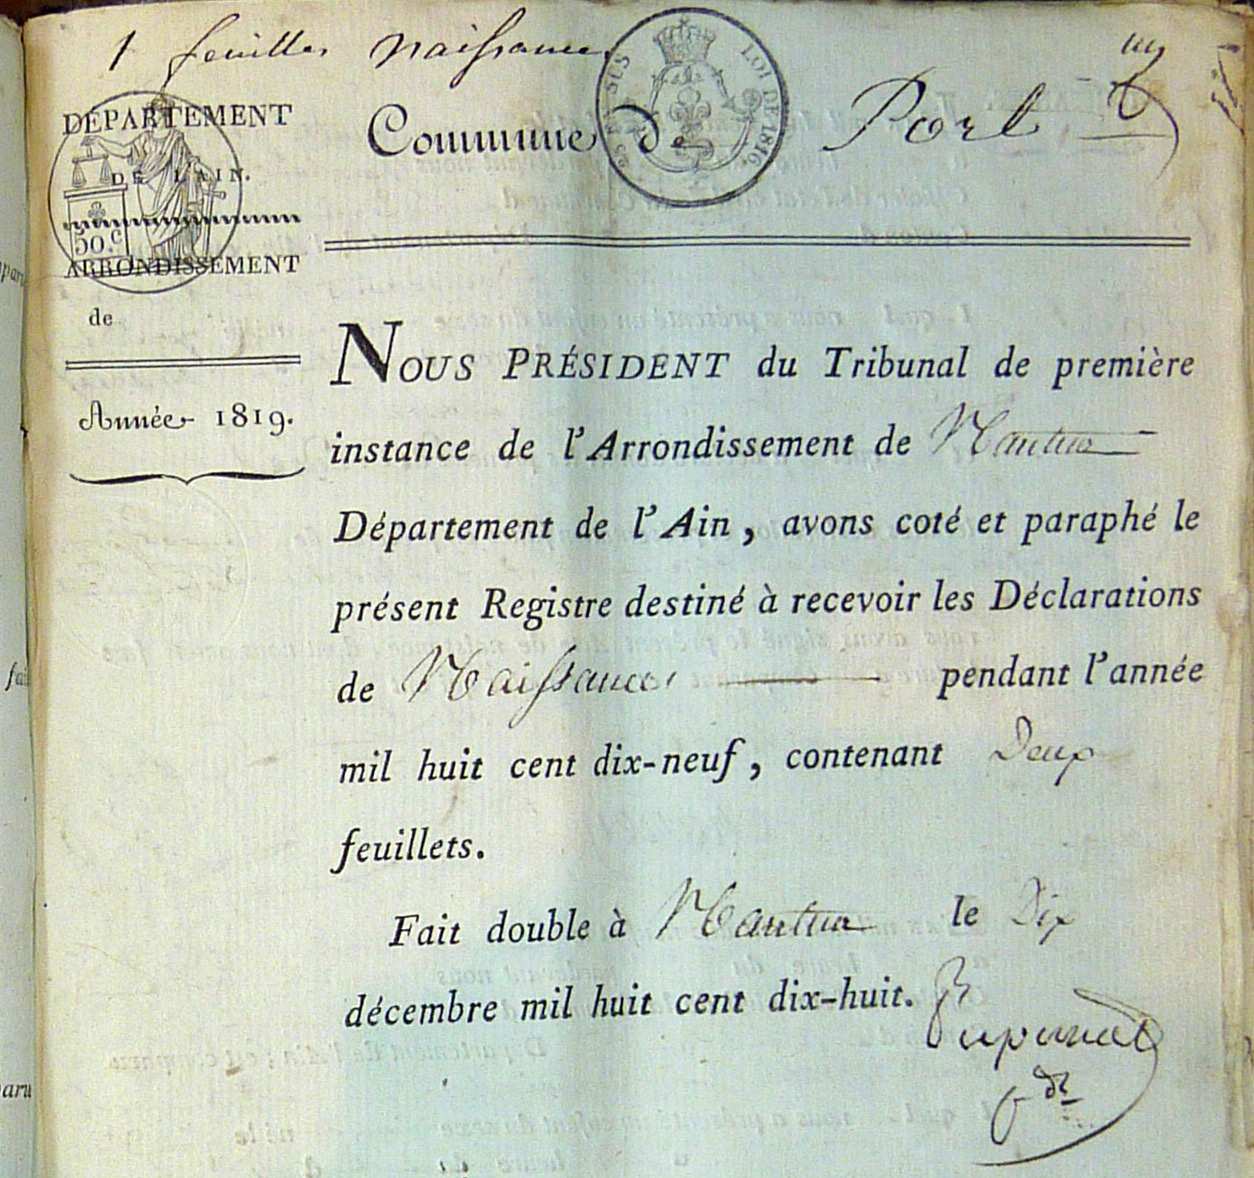 1 feuillet naissances
DÉPARTEMENT
DE L'AIN.
50.c
ARRONDISSEMENT
de
Année 1819.
EN SUS
LOI DE 1816.
Commune de Port
NOUS PRÉSIDENT du Tribunal de première
instance de l'Arrondissement de Nantua
Département de l'Ain, avons coté et paraphé le
présent Registre destiné à recevoir les Déclarations
de Naissances pendant l'année
mil huit cent dix-neuf, contenant Deux
feuillets.
Fait double à Nantua le Dix
décembre mil huit cent dix-huit.